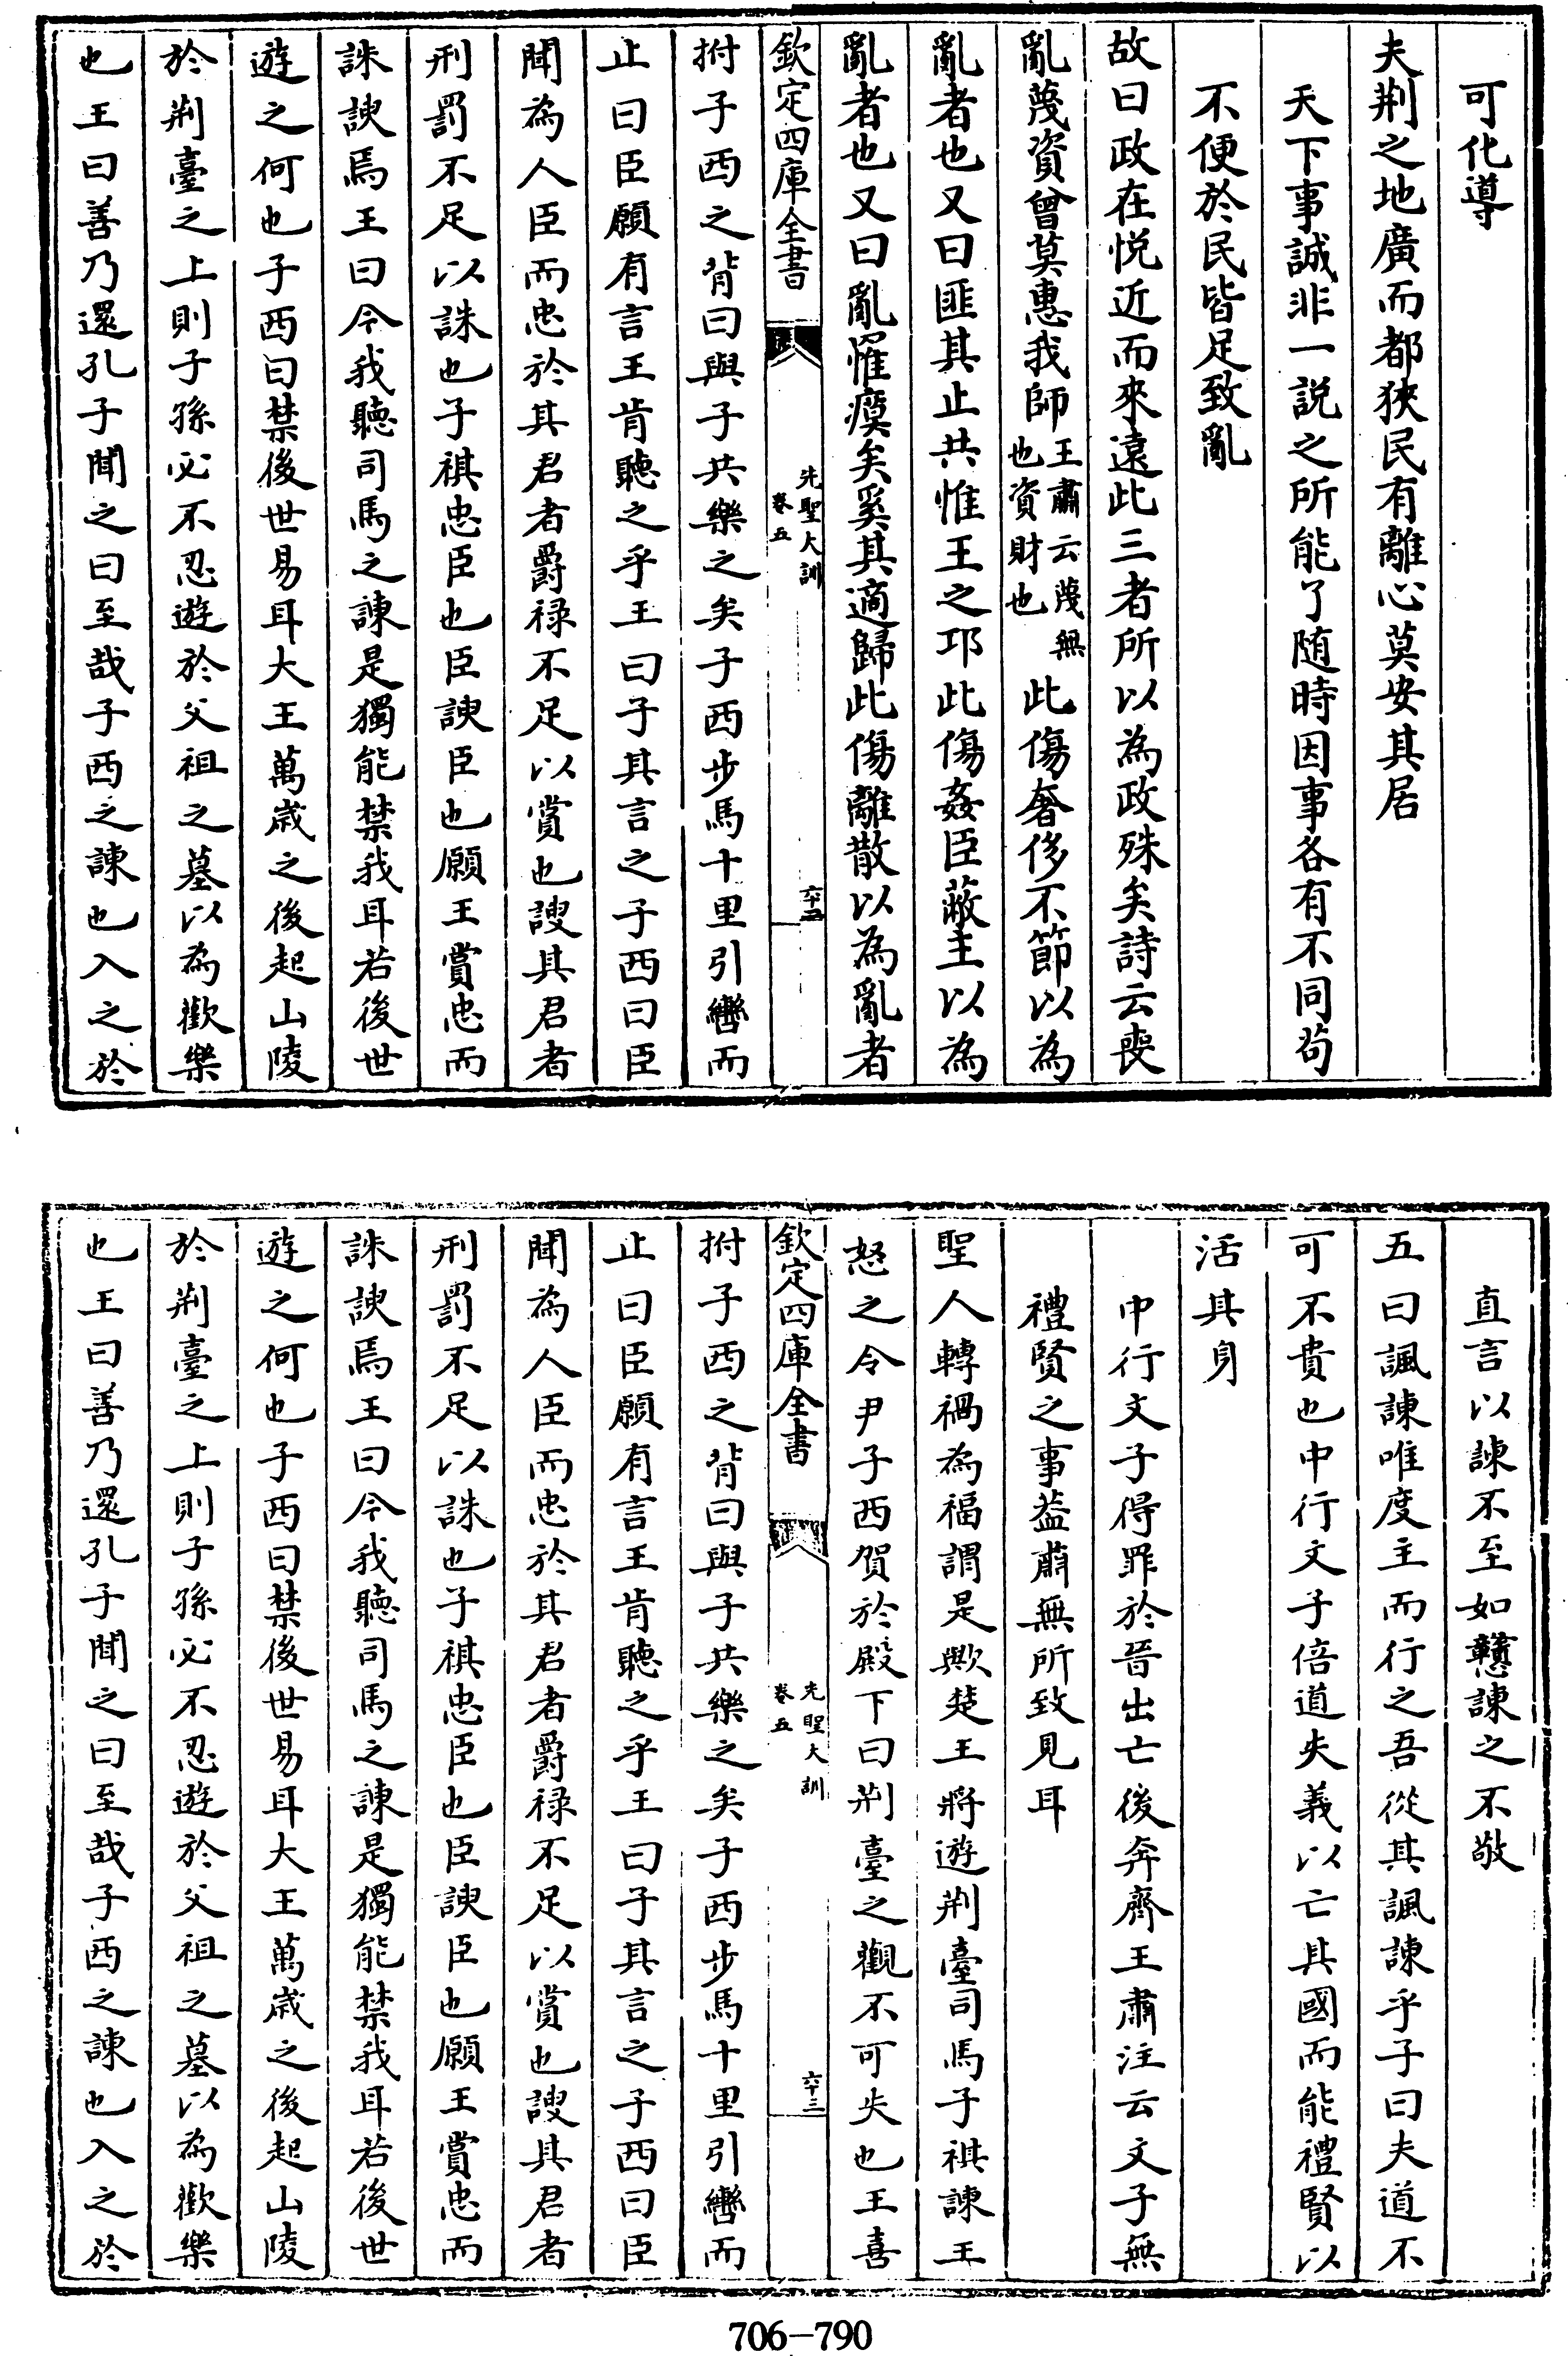 可化導
夫荆之地廣而都狹民有離心莫安其居
天下事誠非一說之所能了随時因事各有不同茍
不便於民皆足致亂
故曰政在悦近而來遠此三者所以為政殊矣詩云喪
亂蔑資曾莫惠我師王肅云蔑無也資財也此傷奢侈不節以為
亂者也又曰匪其止共惟王之邛此傷姦臣蔽主以為
亂者也又曰亂離瘼矣奚其適歸此傷離散以為亂者
欽定四庫全書
先聖大訓
卷五
六十二
拊子西之背曰與子共樂之矣子西步馬十里引轡而
止曰臣願有言王肯聽之乎王曰子其言之子西曰臣
聞為人臣而忠於其君者爵祿不足以賞也諛其君者
刑罰不足以誅也子祺忠臣也臣諛臣也願王賞忠而
誅諛焉王曰今我聽司馬之諫是獨能禁我耳若後世
遊之何也子西曰禁後世易耳大王萬歲之後起山陵
於荆臺之上則子孫必不忍遊於父祖之墓以為歡樂
也王曰善乃還孔子聞之曰至哉子西之諫也入之於
直言以諫不至如戇諫之不敬
五曰諷諫唯度主而行之吾從其諷諫乎子曰夫道不
可不貴也中行文子倍道失義以亡其國而能禮賢以
活其身
中行文子得罪於晉出亡後奔齊王肅注云文子無
禮賢之事葢肅無所致見耳
聖人轉禍為福謂是歟楚王將遊荆臺司馬子祺諫王
怒之令尹子西賀於殿下曰荆臺之觀不可失也王喜
欽定四庫全書
先聖大訓
卷五
六十三
拊子西之背曰與子共樂之矣子西步馬十里引轡而
止曰臣願有言王肯聽之乎王曰子其言之子西曰臣
聞為人臣而忠於其君者爵祿不足以賞也諛其君者
刑罰不足以誅也子祺忠臣也臣諛臣也願王賞忠而
誅諛焉王曰今我聽司馬之諫是獨能禁我耳若後世
遊之何也子西曰禁後世易耳大王萬歲之後起山陵
於荆臺之上則子孫必不忍遊於父祖之墓以為歡樂
也王曰善乃還孔子聞之曰至哉子西之諫也入之於
706-790